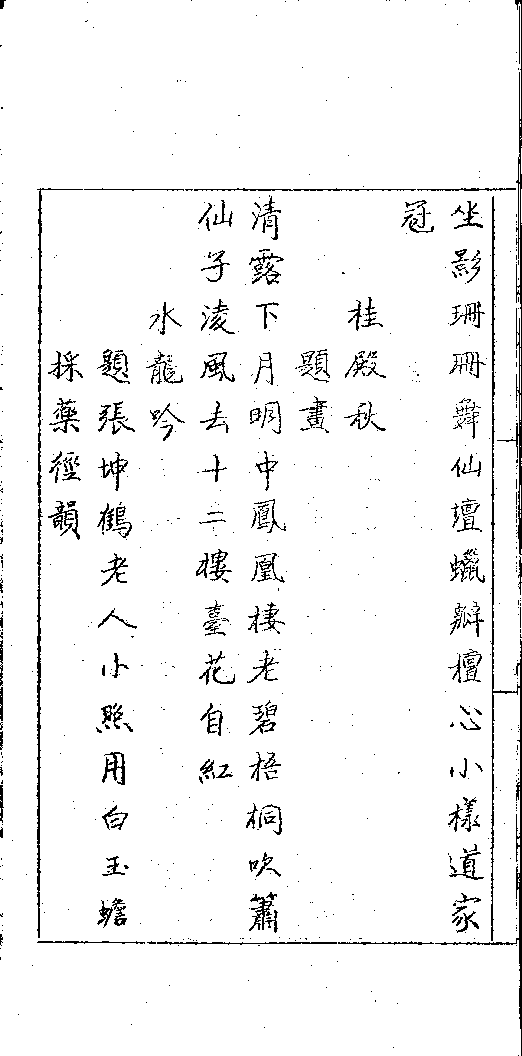 坐影珊珊舞仙壇蠟瓣檀心小様道家
冠
桂殿秋
題畫
清露下月明中鳳凰棲老碧梧桐吹簫
仙子淩風去十二樓臺花自紅
水龍吟
題張坤鶴老人小照用白玉蟾
採藥徑韻